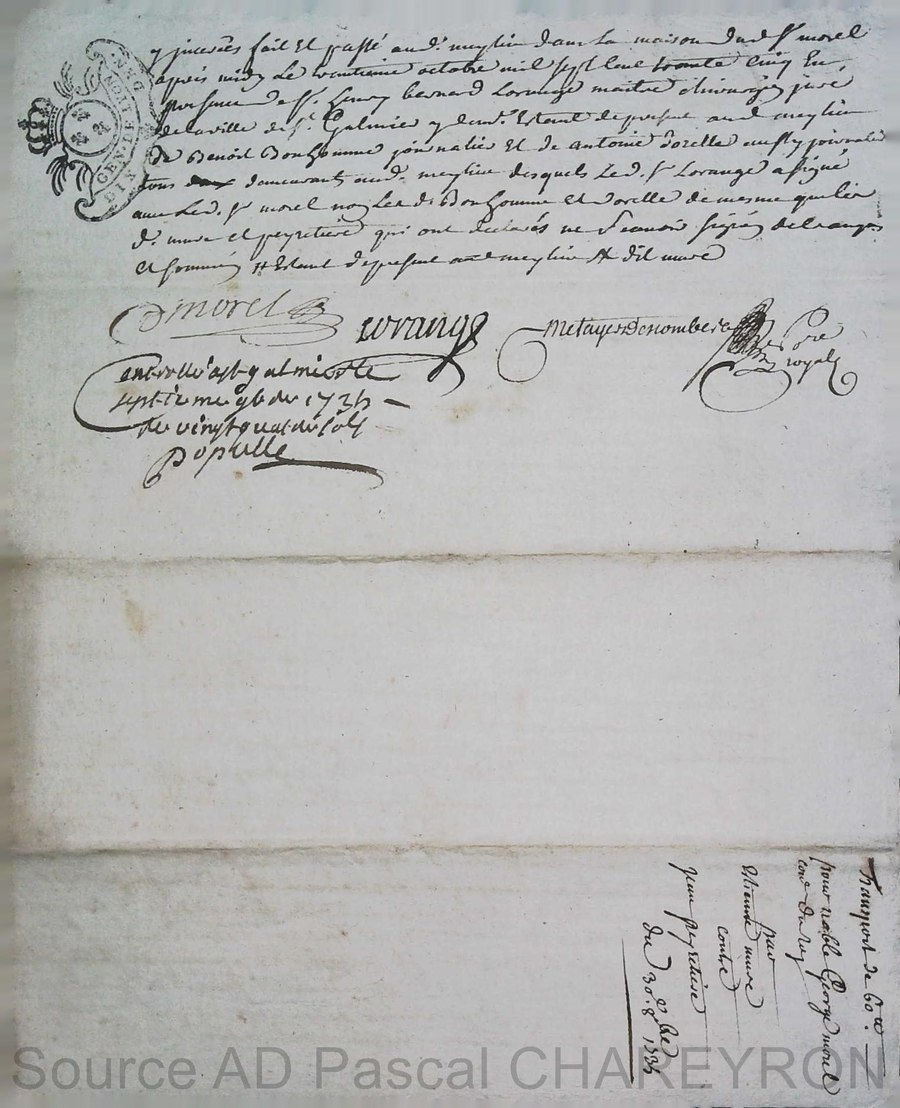 y incerées fait Et passé aud. meylieu dans La maison dud. Sr. morel
après midy Le trentieme octobre mil sept Cent trente Cinq En
presence de Sr. henry bernard Lorange maitre chirurgien juré
de la ville de St. Galmier y demt. Estant de present aud. meylieu
Et de Benoit Bonhomme journalier Et de antoine dorelle aussy journalier
tous demeurants aud. meylieu desquels Led. Sr Lorange a signé
avec Led. Sr morel non Les ds. Bonhomme et dorelle de mesme que Les
ds. mure et peyretiere qui ont declarés ne Scavoir signer de ce enquis
et sommés # Estant de present aud. meylieu # dit mure
Dmorel
Lorange
metayer Denombe
Nore
royal
Controllé a st galmier le
septieme 9b de 1735
de vingt quatre sols
populle
GEN. DE LYON
DIX DEN.
Transport de 60 tt
pour noble George morel
con du roy
par
Estienne mure
contre
jean peyretiere
du 30e 8bre 1735
Source AD Pascal CHAREYRON